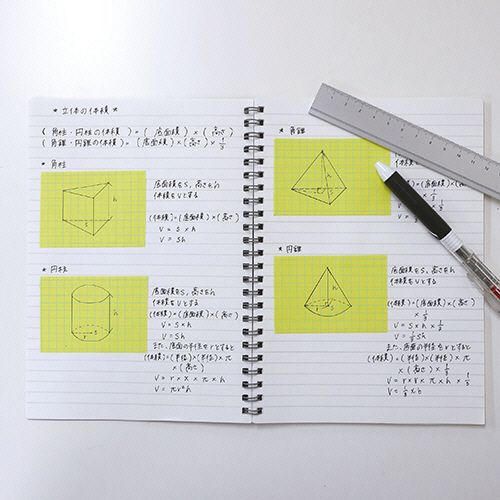 ★ 立体の体積 ★
(角柱・円柱の体積) = (底面積) × (高さ)
(角錐・円錐の体積) = (底面積) × (高さ) × 1/3
★ 角柱
h
S
底面積をS、高さをh
体積をVとする
(体積) = (底面積) × (高さ)
V = S × h
V = Sh
★ 円柱
h
r
S
底面積をS、高さをh
体積をVとする
(体積) = (底面積) × (高さ)
V = S × h
V = Sh
また、底面の半径をrとすると
(体積) = (半径) × (半径) × π
× (高さ)
V = r × r × π × h
V = πr²h
★ 角錐
h
S
体積
(体積)
× 1/3
★ 円錐
h
r
S
底面積をS、高さをh
体積をVとする
(体積) = (底面積) × (高さ)
× 1/3
V = S × h × 1/3
V = 1/3 Sh
また、底面の半径をrとすると
(体積) = (半径) × (半径) × π
× (高さ) × 1/3
V = r × r × π × h × 1/3